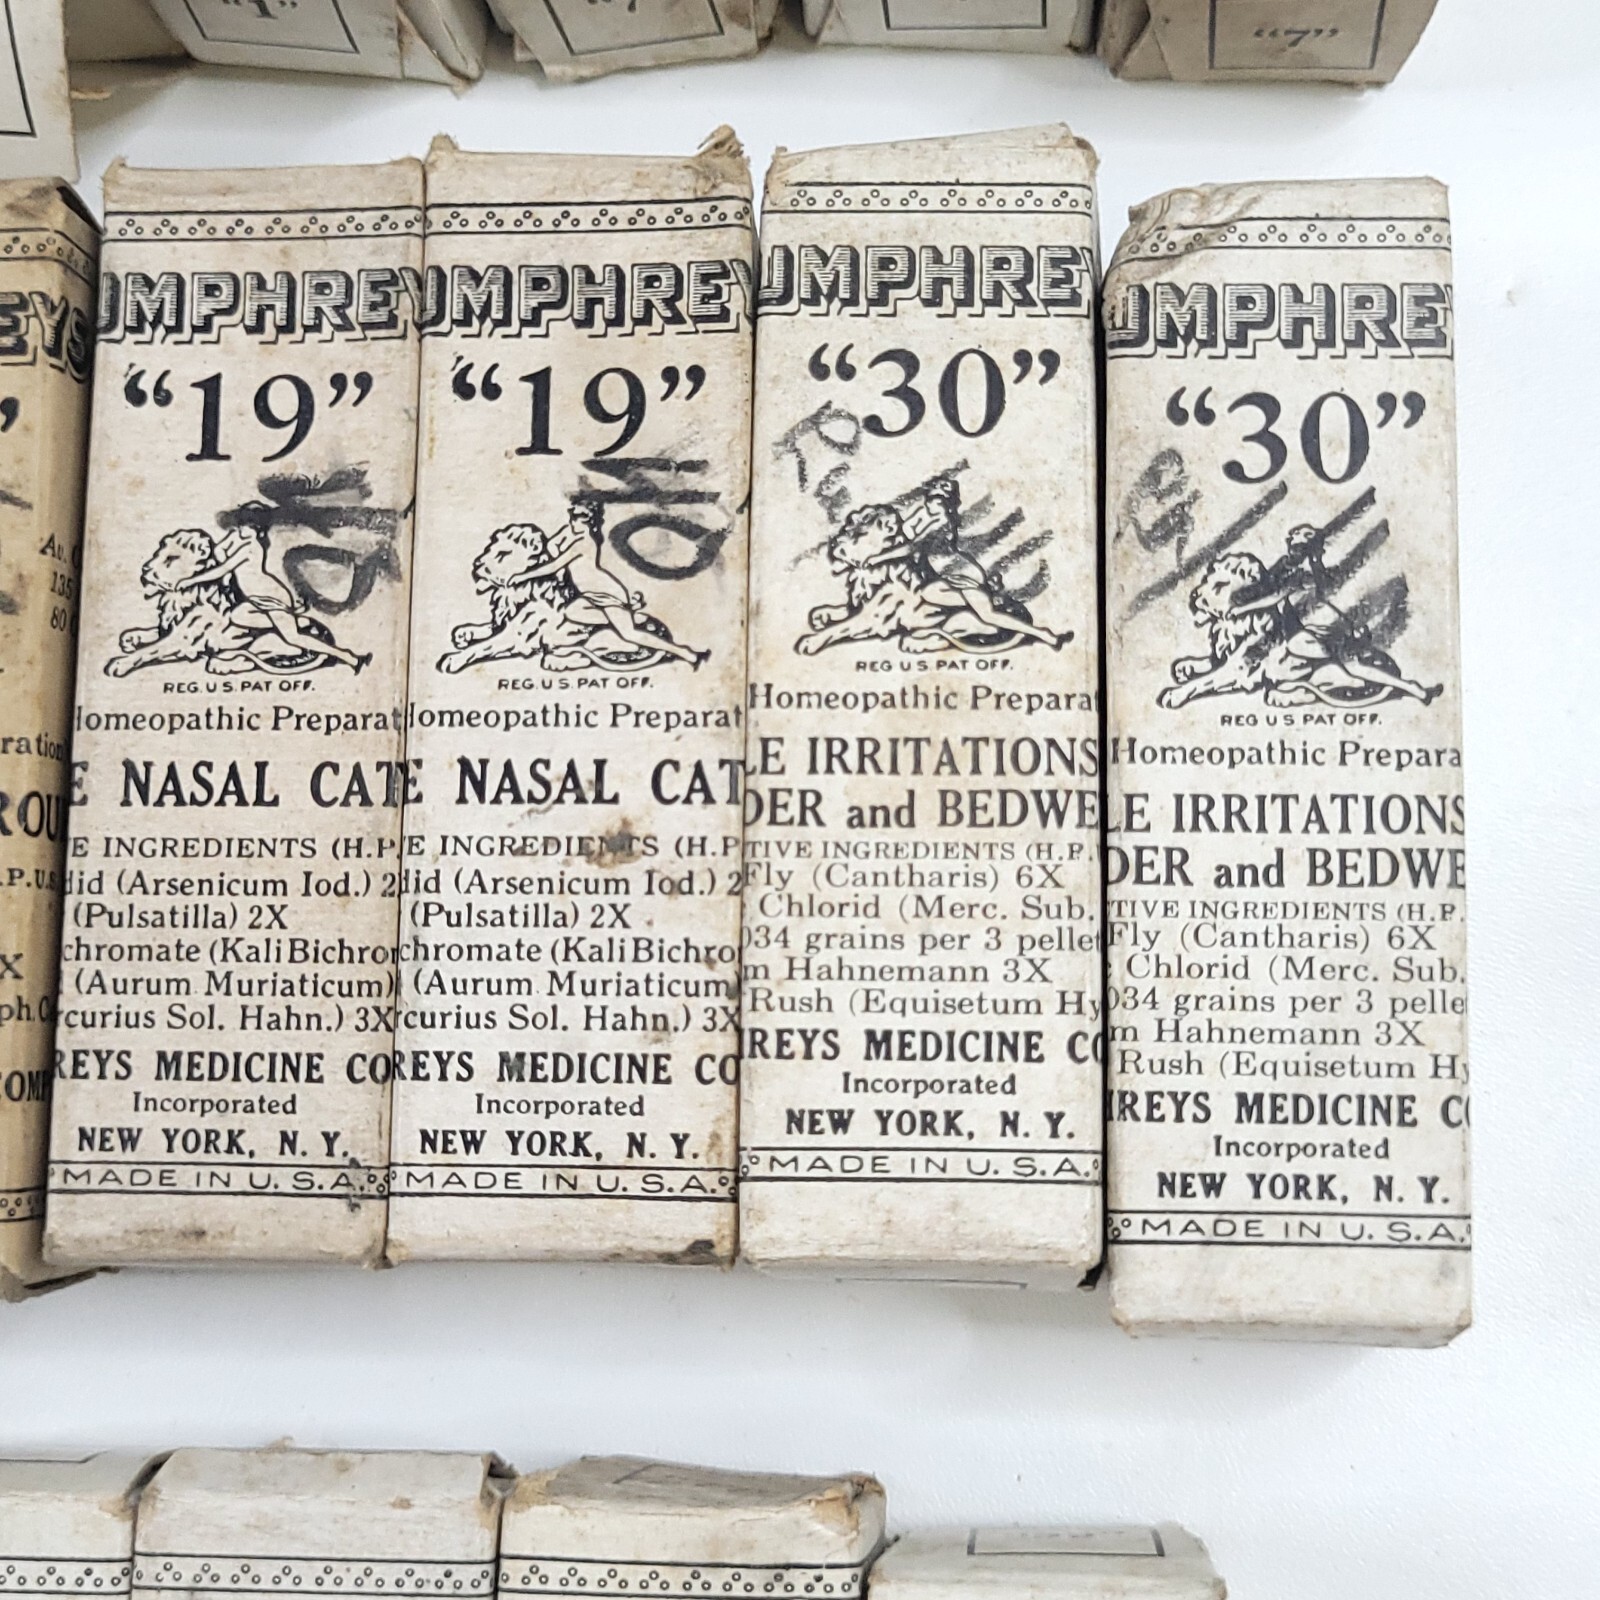 "1"
"7"
"7"
EYS
UMPHREY
"19"
REG. U.S. PAT OFF.
Homeopathic Preparat
E NASAL CAT
E INGREDIENTS (H.P.
did (Arsenicum Iod.) 2
(Pulsatilla) 2X
chromate (Kali Bichro
(Aurum Muriaticum)
rcurius Sol. Hahn.) 3X
REYS MEDICINE CO
Incorporated
NEW YORK, N. Y.
MADE IN U. S. A.
UMPHREY
"19"
REG. U.S. PAT OFF.
Homeopathic Preparat
E NASAL CAT
E INGREDIENTS (H.P
did (Arsenicum Iod.) 2
(Pulsatilla) 2X
chromate (Kali Bichro
(Aurum Muriaticum
rcurius Sol. Hahn.) 3X
REYS MEDICINE CO
Incorporated
NEW YORK, N. Y.
MADE IN U. S. A.
UMPHREY
"30"
REG U S PAT OFF.
Homeopathic Preparat
LE IRRITATIONS
DER and BEDWE
TIVE INGREDIENTS (H.P.
Fly (Cantharis) 6X
Chlorid (Merc. Sub.
034 grains per 3 pellet
m Hahnemann 3X
Rush (Equisetum Hy
REYS MEDICINE CO
Incorporated
NEW YORK, N. Y.
MADE IN U. S. A.
UMPHREY
"30"
REG U S PAT OFF.
Homeopathic Prepara
LE IRRITATIONS
DER and BEDWE
TIVE INGREDIENTS (H.P.
Fly (Cantharis) 6X
Chlorid (Merc. Sub.
034 grains per 3 pelle
m Hahnemann 3X
Rush (Equisetum Hy
HREYS MEDICINE CO
Incorporated
NEW YORK, N. Y.
MADE IN U. S. A.